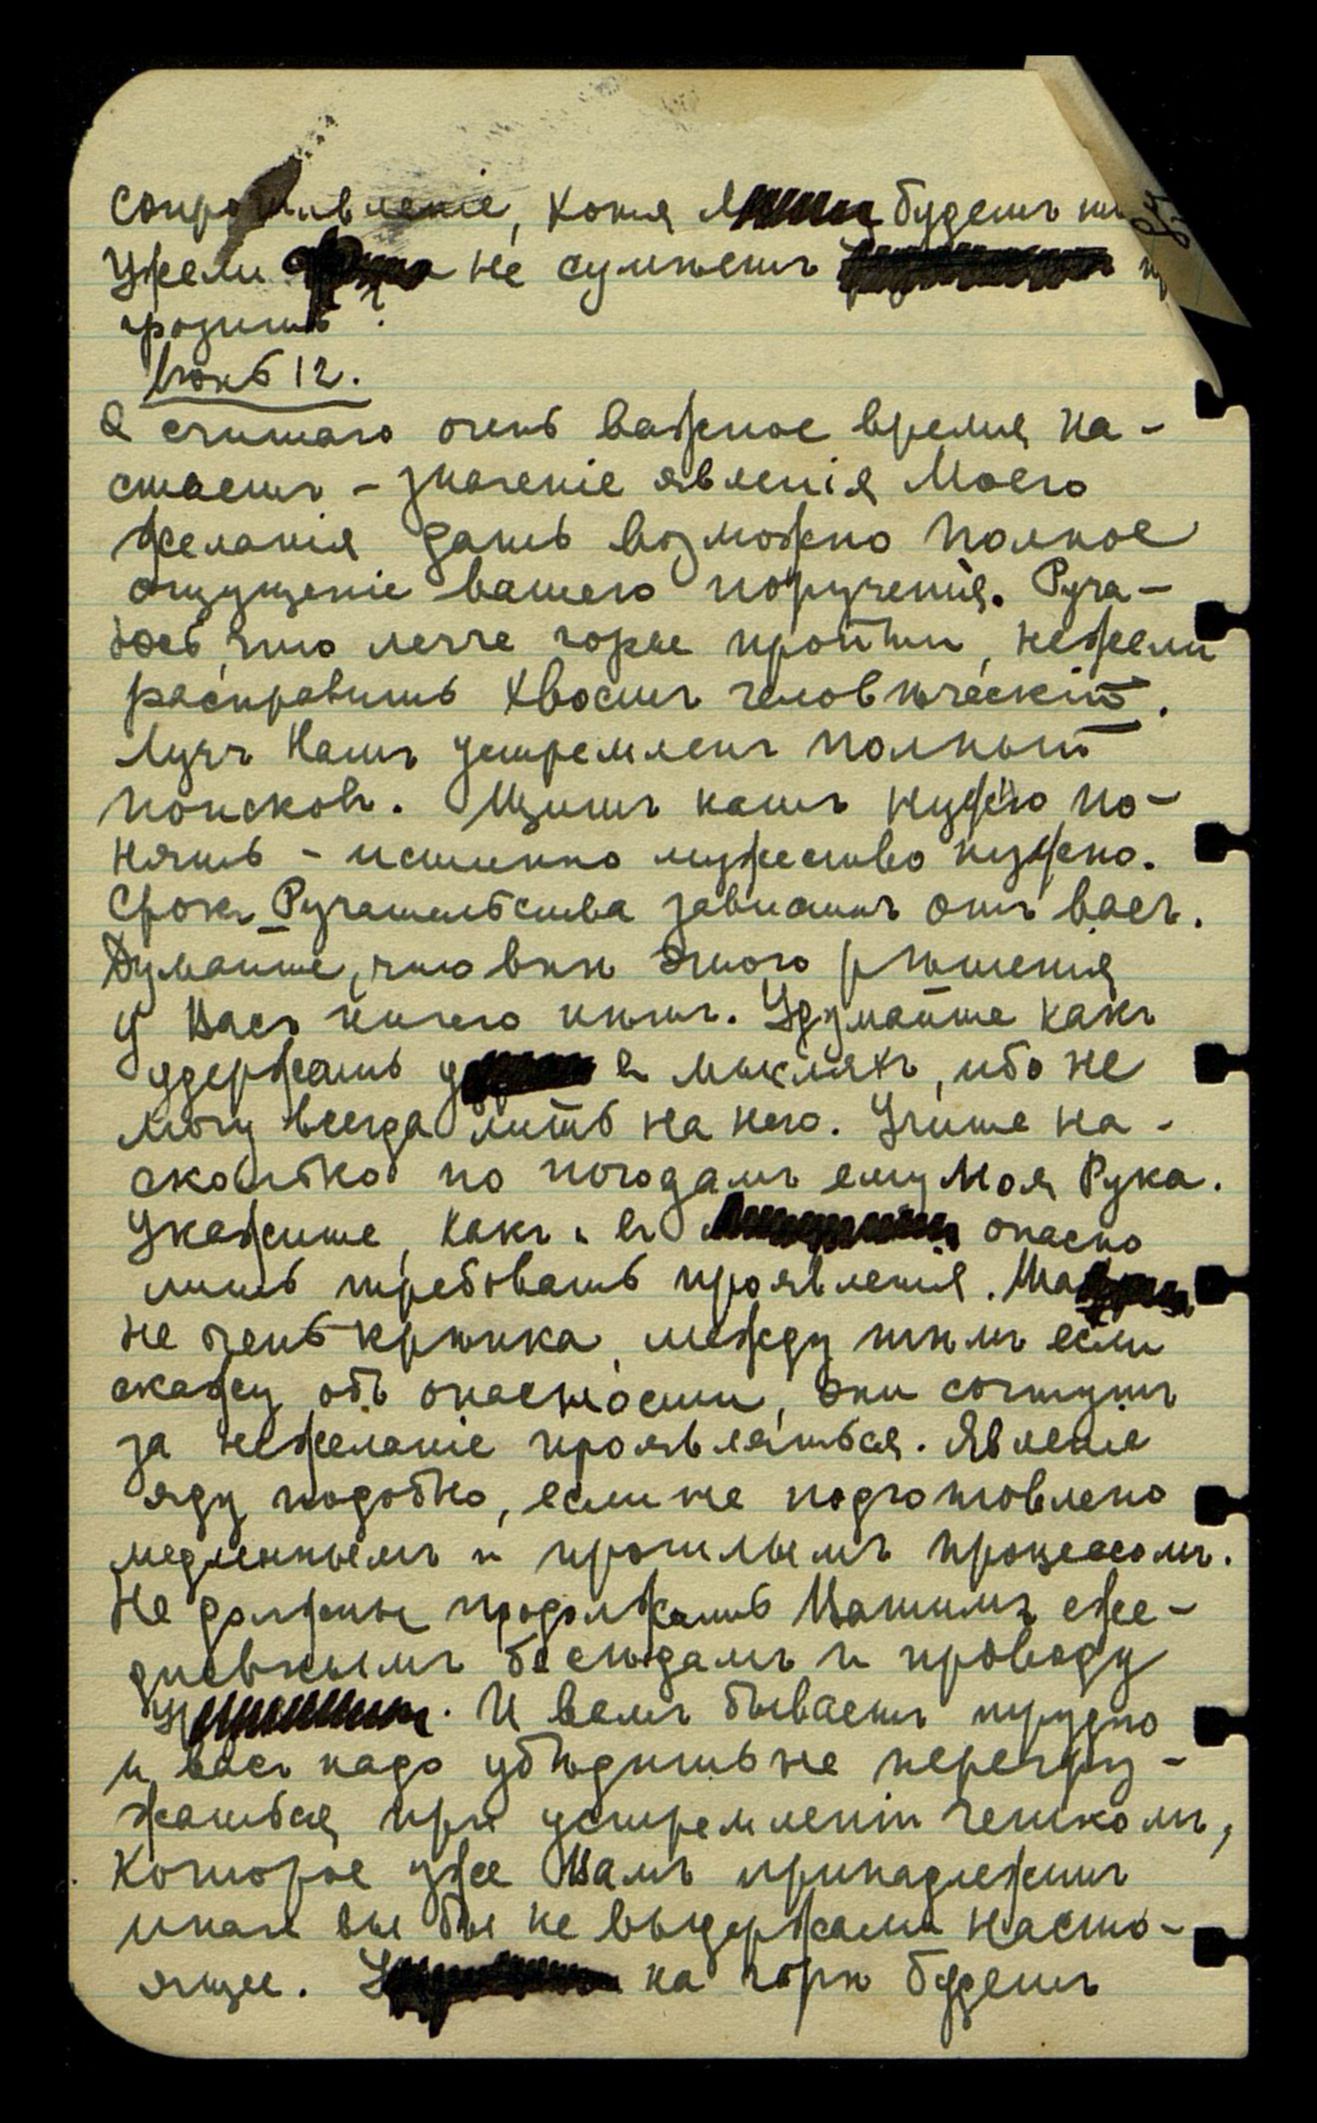 Сопротивленіе, хотя Л будетъ
Ужели не сумѣетъ
грозить?
Іюнь 12.
Я считаю очень важное время на-
стаетъ – значеніе явленія Моего
желанія дать возможно полное
ощущеніе вашего порученія. Руча-
юсь, что легче горы пройти, нежели
расправить хвостъ человѣческій.
Лучъ Нашъ устремленъ полный
поисковъ. Щитъ нашъ нужно по-
нять – истинно мужество нужно.
Срокъ Ручательства зависитъ отъ васъ.
Думайте, что внѣ этого рѣшенія
у Васъ ничего нѣтъ. Удумайте какъ
удержать у въ мысляхъ, ибо не
могу всегда лить на него. Учите на-
сколько по погодамъ ему Моя Рука.
Укажите, какъ въ опасно
лишь требовать проявленія.
не очень крѣпка, между тѣмъ если
скажу объ опасности, они сочтутъ
за нежеланіе проявляться. Явленіе
яду подобно, если не подготовлено
медленнымъ и прошлымъ процессомъ.
Не должны продолжать Вашимъ еже-
дневнымъ бесѣдамъ и проводу
У. И вамъ бываетъ трудно
и васъ надо убѣдить не перегру-
жаться при устремленіи чёткомъ,
которое уже Вамъ принадлежитъ
иначе вы бы не выдержали насто-
ящее. У на горѣ будетъ